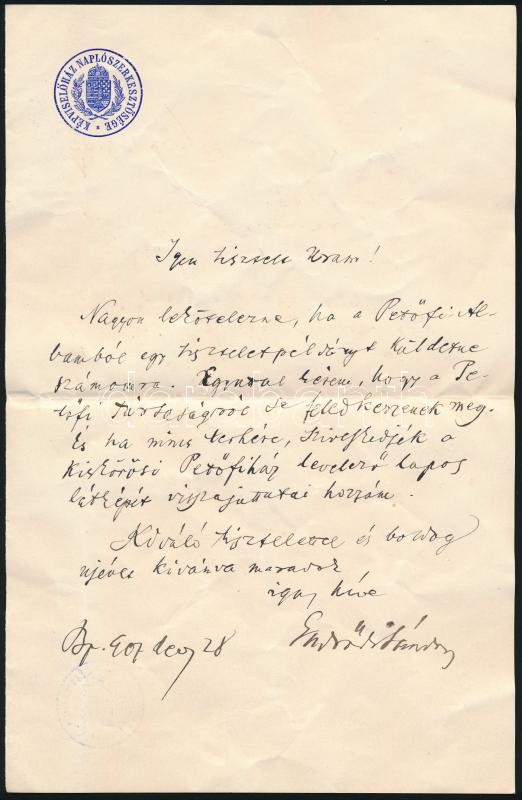 KÉPVISELŐHÁZ NAPLÓSZERKESZTŐSÉGE *
Igen tisztelt Uram!
Nagyon lekötelezne, ha a Petőfi-Al-
bumból egy tiszteletpéldányt küldetne
számomra. Egyuttal kérem, hogy a Pe-
tőfi Társaságról se feledkezzenek meg.
És ha nincs terhére, sziveskedjék a
kiskőrösi Petőfiház levelező lapos
látképét visszajuttatni hozzám.
Kiváló tisztelettel és boldog
ujévet kivánva maradok
igaz híve
Bp. 907 dec 28 Endrődi Sándor
darabanth